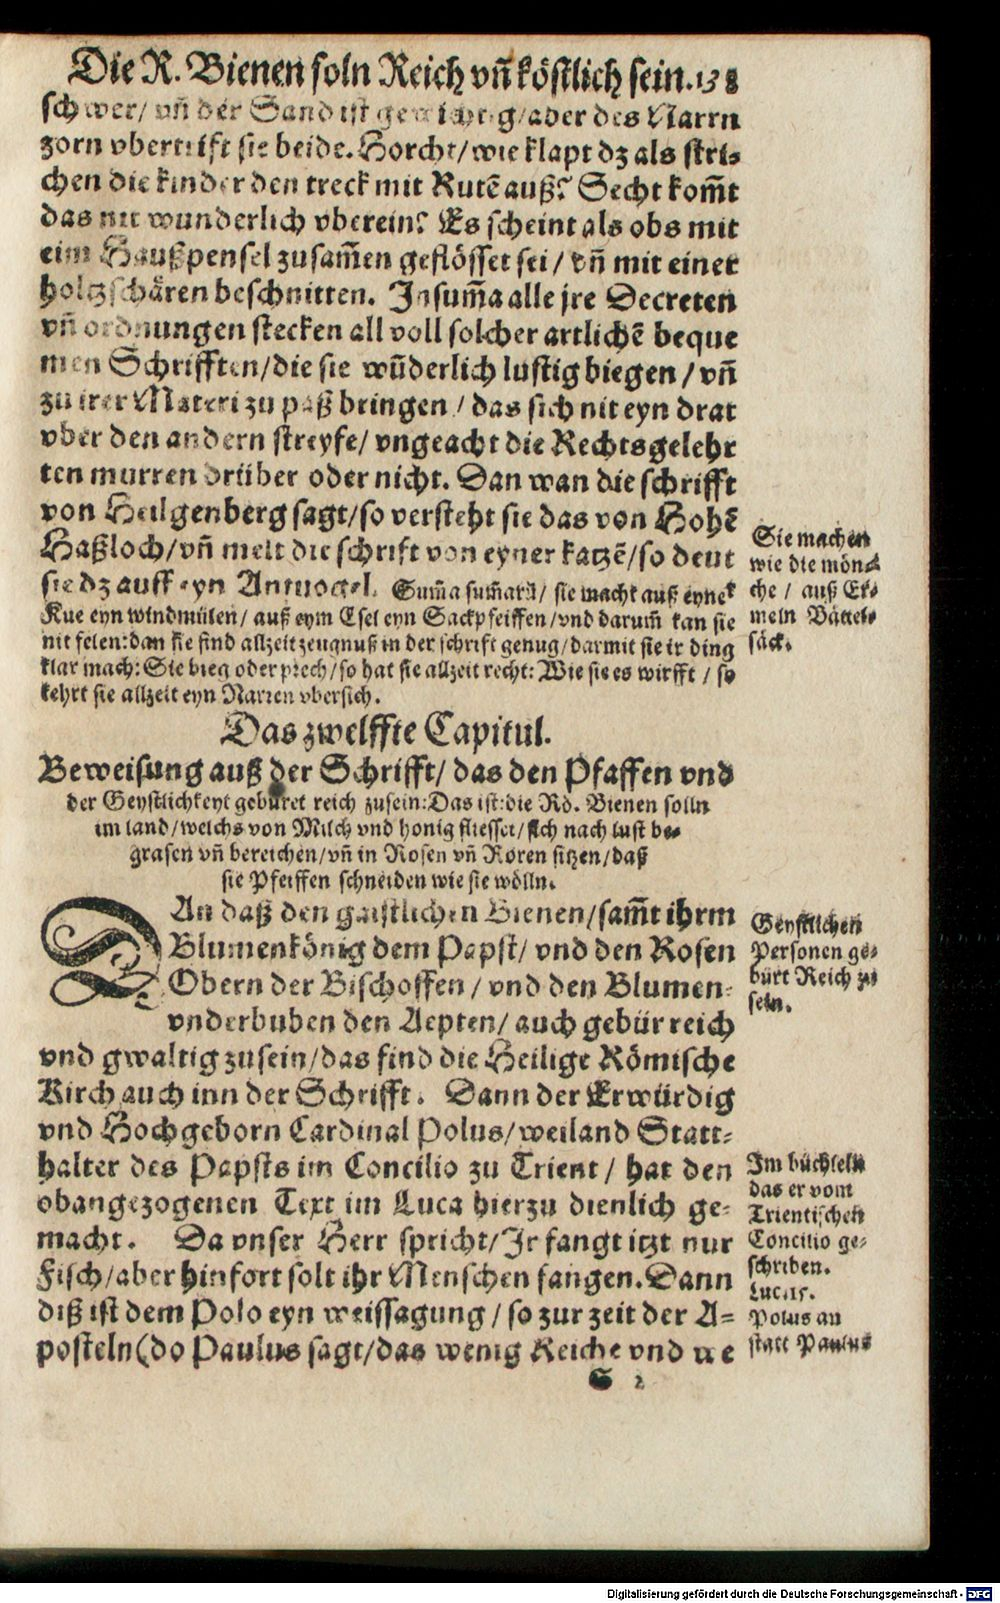 Die R. Bienen soln Reich vñ köstlich sein. 138
schwer/ vñ der Sand ist gewichtig/aber des Narrn
zorn vbertrift sie beide. Horcht/wie klapt dz als stri-
chen die kinder den treck mit Rutẽ auß? Secht kom̃t
das nit wunderlich vberein? Es scheint als obs mit
eim Haußpensel zusam̃en geflösset sei/ vñ mit einer
holtzschären beschnitten. In sum̃a alle jre Decreten
vñ ordnungen stecken all voll solcher artlichẽ beque
men Schrifften/die sie wũderlich lustig biegen/vñ
zu irer Materi zu paß bringen/das sich nit eyn drat
vber den andern streyfe/ vngeacht die Rechtsgelehr
ten murren drüber oder nicht. Dan wan die schrifft
von Heilgenberg sagt/so versteht sie das von Hohẽ
Haßloch/vñ melt die schrift von eyner katzẽ/so deut
sie dz auff eyn Antvogel. Sum̃a sum̃arũ/ sie macht auß eyner
Kue eyn windmülen/ auß eym Esel eyn Sackpfeiffen/vnd darum̃ kan sie
nit felen:dan sie find allzeit zeugnuß in der schrift genug/darmit sie ir ding
klar mach: Sie bieg oder prech/so hat sie allzeit recht: Wie sie es wirfft/so
kehrt sie allzeit eyn Narren vbersich.
Sie machen
wie die mön-
che/ auß Er-
meln Bättel-
säck.
Das zwelffte Capitul.
Beweisung auß der Schrifft/das den Pfaffen vnd
der Geystlichkeyt gebüret reich zusein:Das ist:die Rö. Bienen solln
im land/welchs von Milch vnd honig fliesset/sich nach lust be-
grasen vñ bereichen/vñ in Rosen vñ Roren sitzen/daß
sie Pfeiffen schneiden wie sie wölln.
DAn daß den gaistlichen Bienen/sam̃t ihrm
Blumenkönig dem Papst/ vnd den Rosen
Obern der Bischoffen/ vnd den Blumen-
vnderbuben den Aepten/ auch gebür reich
vnd gwaltig zusein/das find die Heilige Römische
Kirch auch inn der Schrifft. Dann der Erwürdig
vnd Hochgeborn Cardinal Polus/weiland Statt-
halter des Papsts im Concilio zu Trient/ hat den
obangezogenen Text im Luca hierzu dienlich ge-
macht. Da vnser Herr spricht/Ir fangt itzt nur
Fisch/aber hinfort solt ihr Menschen fangen. Dann
diß ist dem Polo eyn weissagung/so zur zeit der A-
posteln(do Paulus sagt/das wenig Reiche vnd we
Geystlichen
Personen ge-
bürt Reich zu
sein.
Im büchlein
das er vom
Trientischen
Concilio ge-
schriben.
Luc.
Polus an
statt Paulus
S 2
Digitalisierung gefördert durch die Deutsche Forschungsgemeinschaft - DFG